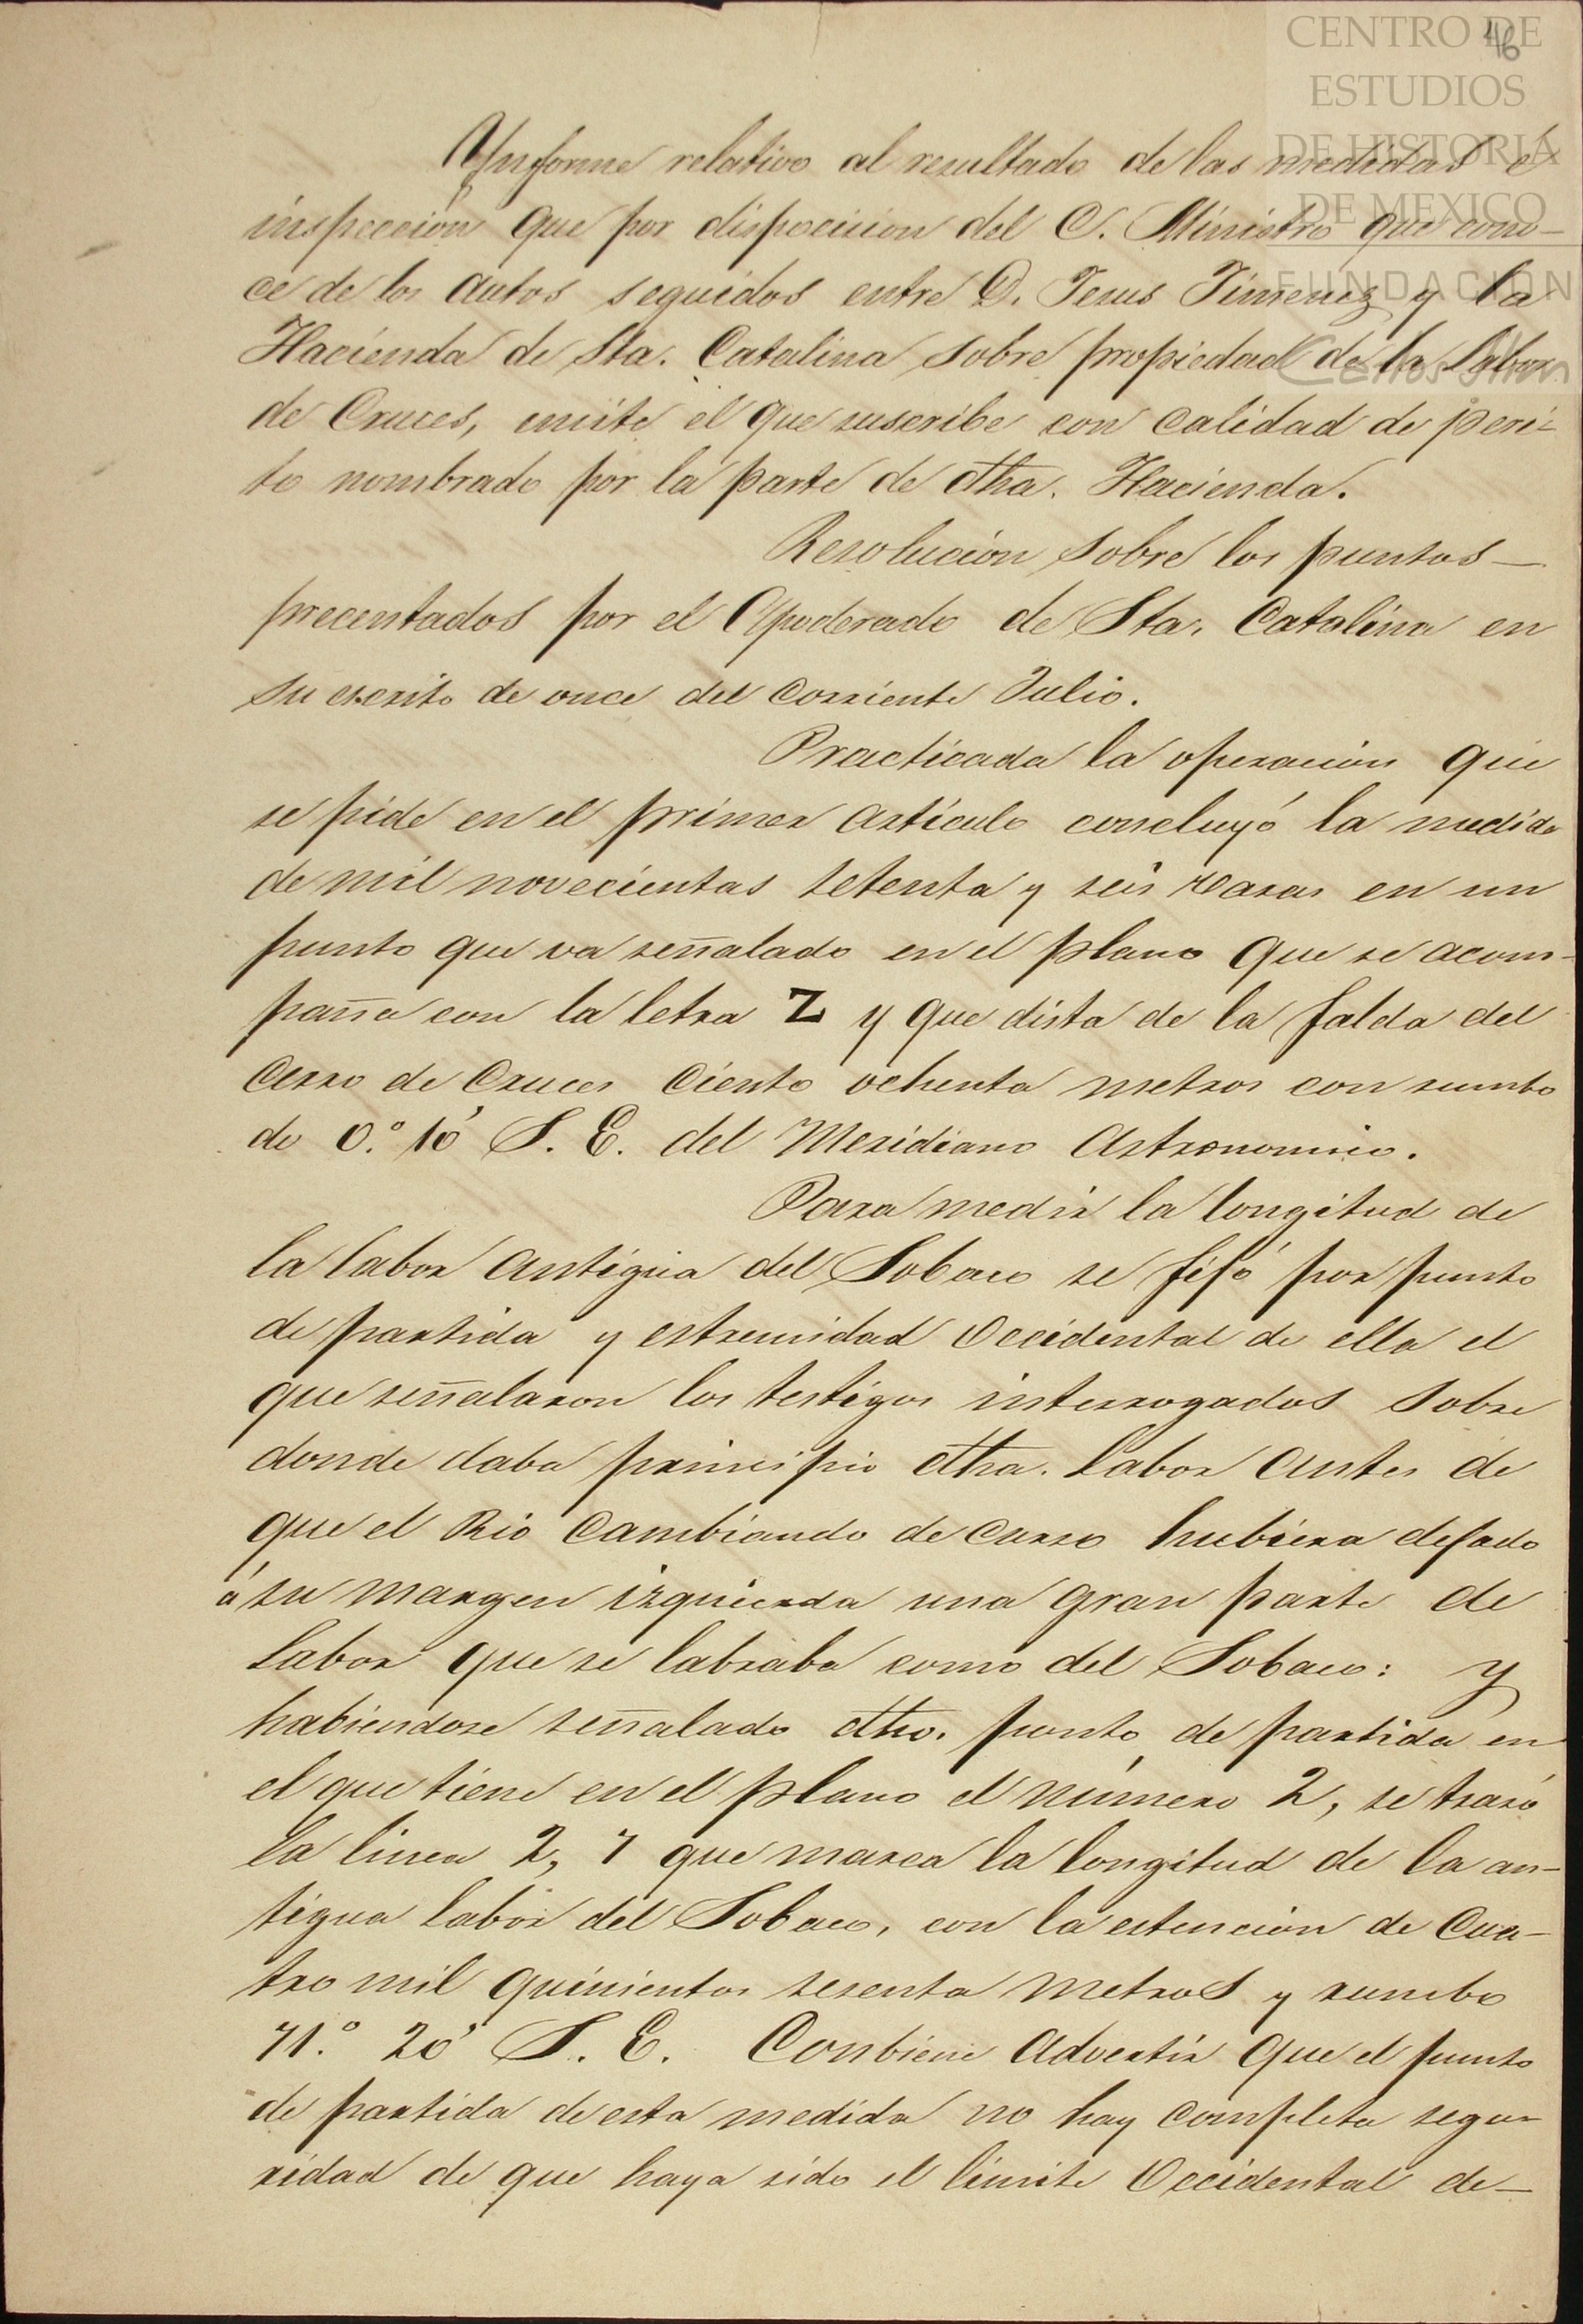 CENTRO DE
46
ESTUDIOS
DE HISTORIA
DE MEXICO
FUNDACIÓN
Carlos Slim
Ynforme relativo al resultado de las medidas é
inspeccion que por disposicion del C. Ministro que cono-
ce de los autos seguidos entre D. Jesus Jimenez y la
Hacienda de Sta. Catalina sobre propiedad de la Labor
de Cruces, emite el que suscribe con calidad de peri-
to nombrado por la parte de dha. Hacienda.
Resolucion sobre los puntos—
precentados por el Apoderado de Sta. Catalina en
su escrito de once del corriente Julio.
Practicada la operacion que
se pide en el primer articulo concluyó la medida
de mil novecientas setenta y seis varas en un
punto que va señalado en el plano que se acom-
paña con la letra Z y que dista de la falda del
cerro de Cruces ciento ochenta metros con rumbo
de 0.° 10' S. E. del Meridiano Astronomico.
Para medir la longitud de
la labor antigua del Sobaco se fijó por punto
de partida y estremidad Occidental de ella el
que señalaron los testigos interrogados sobre
donde daba principio dha. Labor antes de
que el Rio cambiando de curso hubiera dejado
á su margen izquierda una gran parte de
labor que se labraba como del Sobaco: y
habiendose señalado dho. punto de partida en
el que tiene en el plano el número 2, se trazó
la linea 2, 7 que marca la longitud de la an-
tigua labor del Sobaco, con la estencion de cua-
tro mil quinientos sesenta metros y rumbo
71.° 20' S. E. Conbiene advertir que el punto
de partida de esta medida no hay completa segu-
ridad de que haya sido el limite Occidental de—